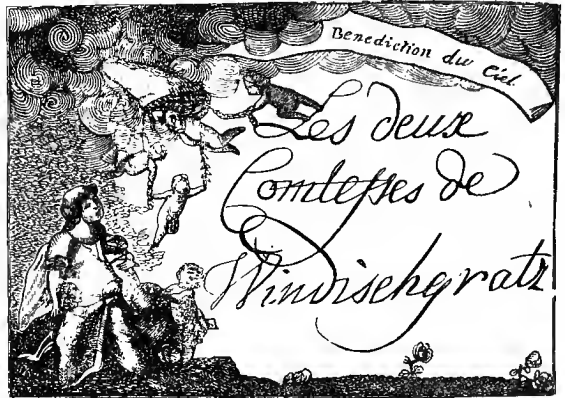 Benediction du Ciel.
Les deux
Comtesses de
Windischgratz